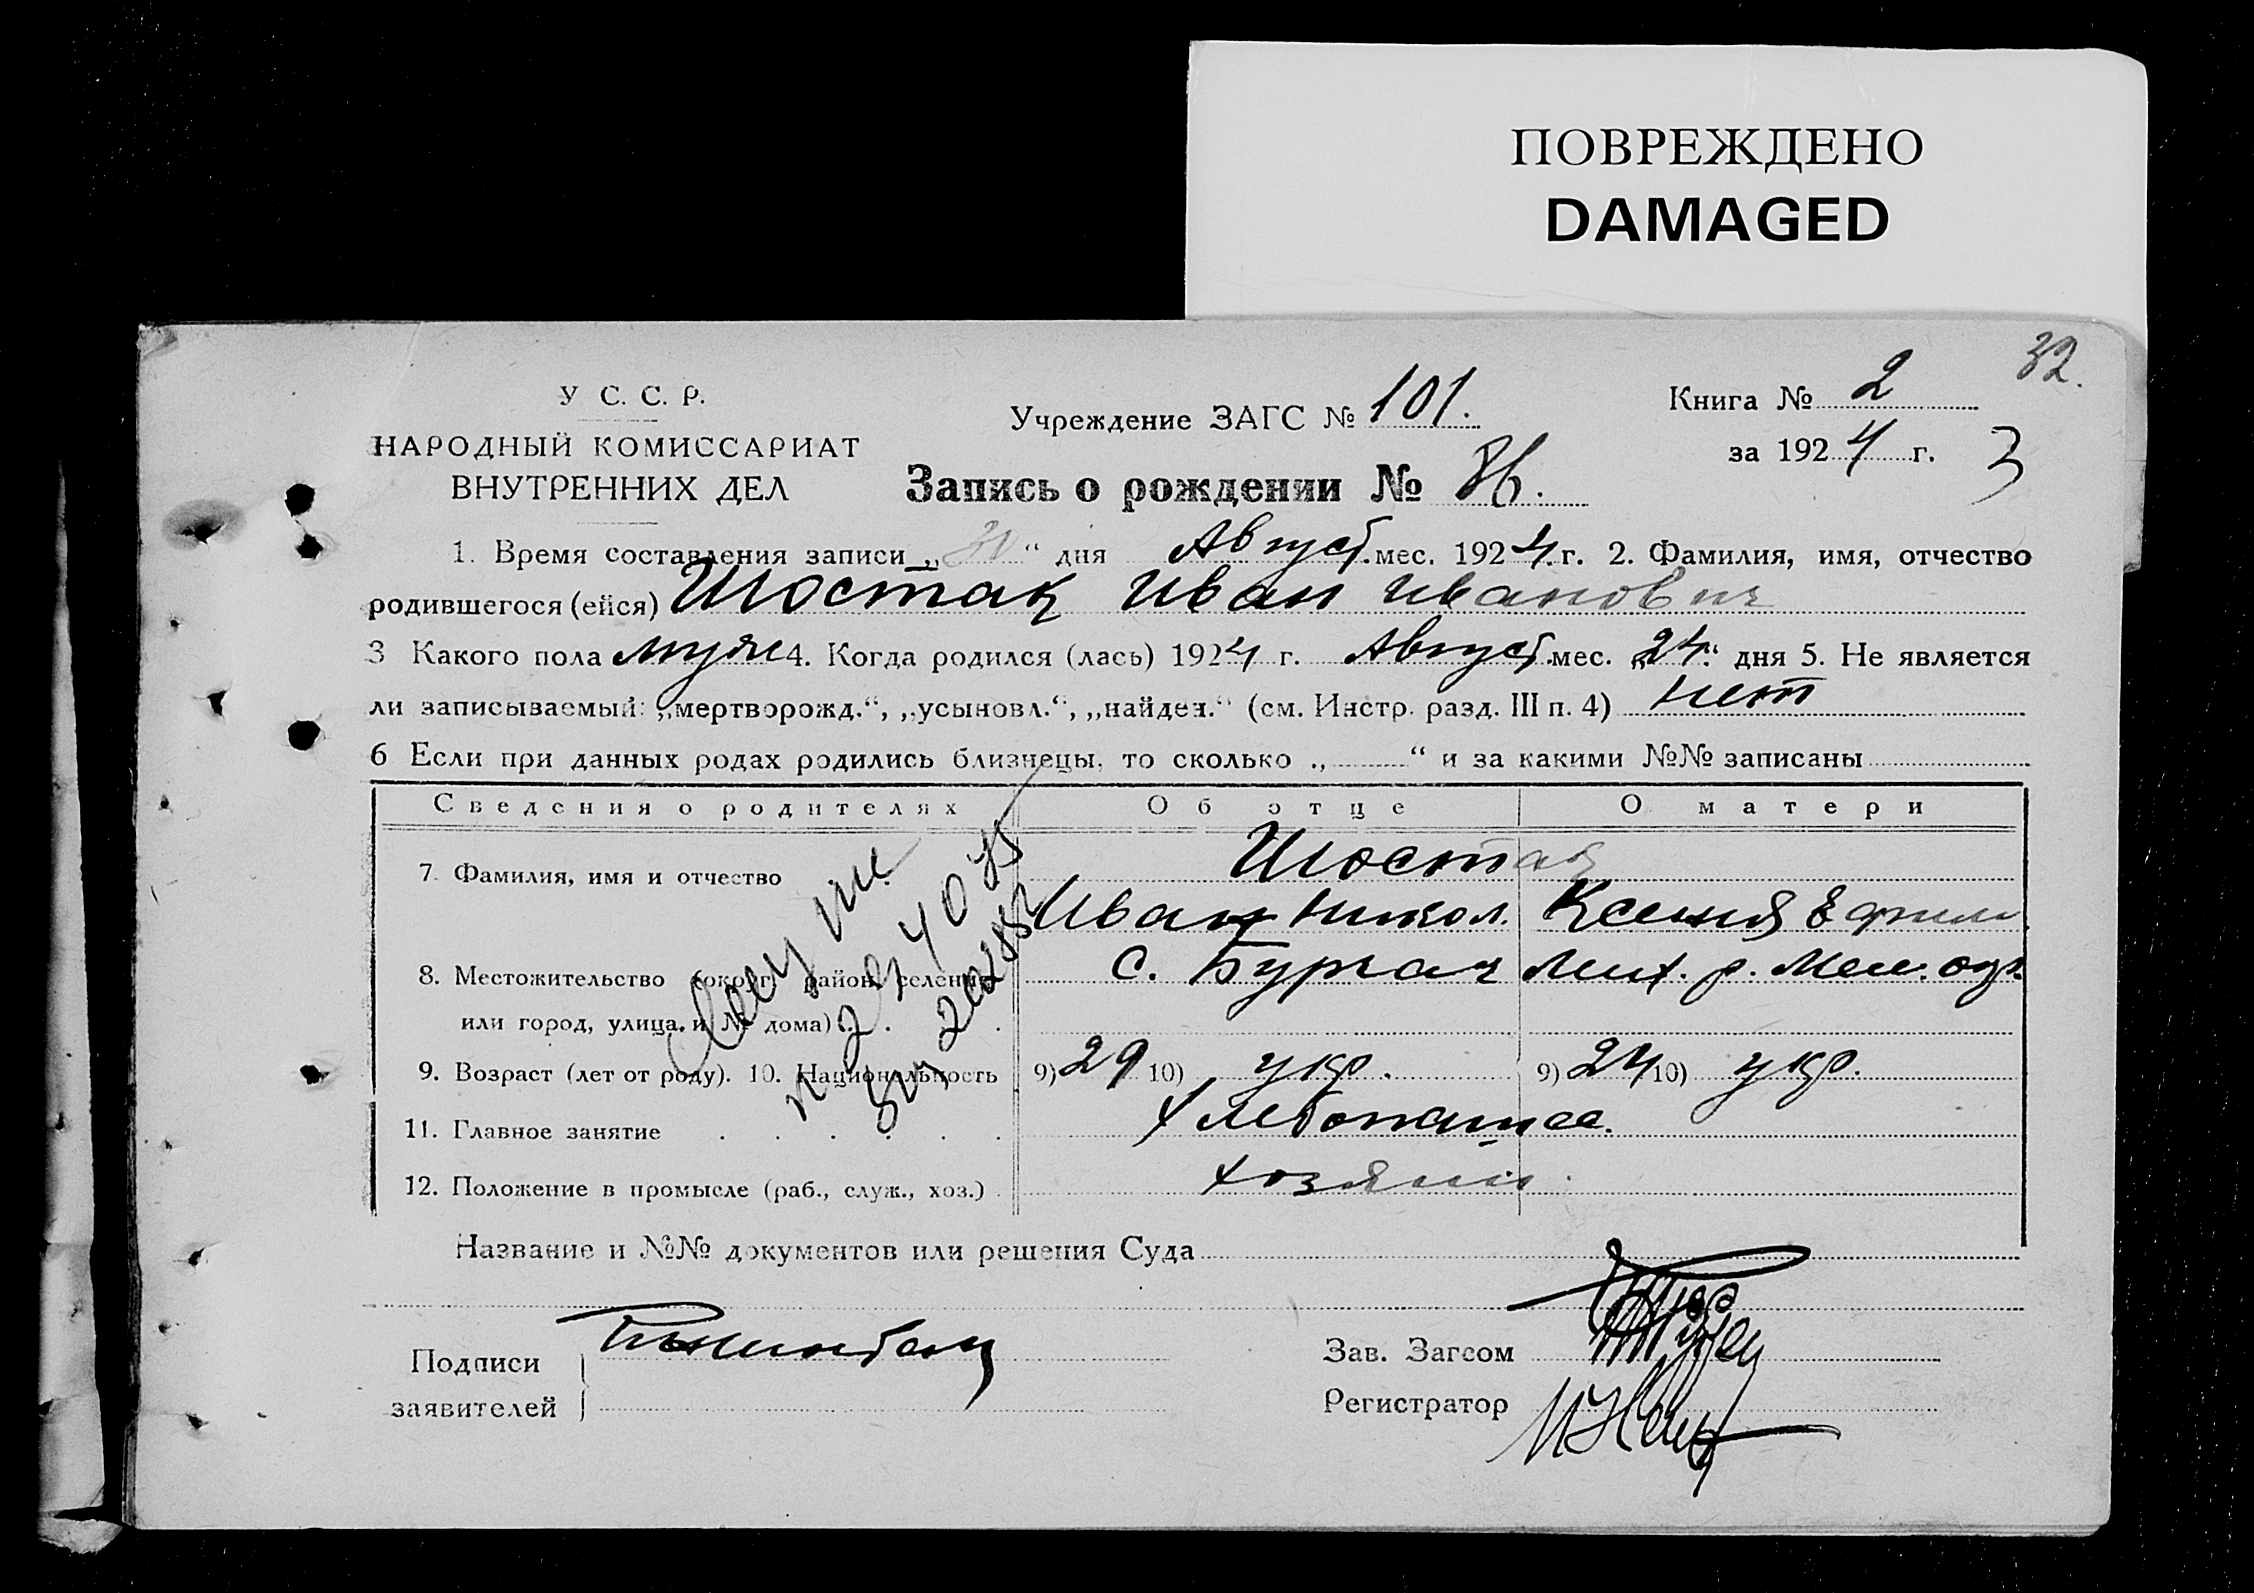 ПОВРЕЖДЕНО
DAMAGED
32.
У С. С. Р.
НАРОДНЫЙ КОМИССАРИАТ
ВНУТРЕННИХ ДЕЛ
Учреждение ЗАГС № 101.
Книга № 2
за 1924 г. 3
Запись о рождении № 86.
1. Время составления записи „30“ дня Август. мес. 1924 г. 2. Фамилия, имя, отчество
родившегося (ейся) Шостак Иван Иванович
3 Какого пола муж 4. Когда родился (лась) 1924 г. Август. мес. „24“ дня 5. Не является
ли записываемый: „мертворожд.“, „усыновл.“, „найден.“ (см. Инстр. разд. III п. 4) нет
6 Если при данных родах родились близнецы, то сколько „ “ и за какими №№ записаны
Сведения о родителях Об отце О матери
7. Фамилия, имя и отчество Шостак
Иван Никол. Ксения
8. Местожительство (округ, район, селение с. Лих. р. Мел. окр.
или город, улица и № дома)
9. Возраст (лет от роду). 10. Национальность 9) 29 10) укр. 9) 24 10) укр.
11. Главное занятие Хлебопашес.
12. Положение в промысле (раб., служ., хоз.) хозяин
Название и №№ документов или решения Суда
Подписи
заявителей
Зав. Загсом
Регистратор